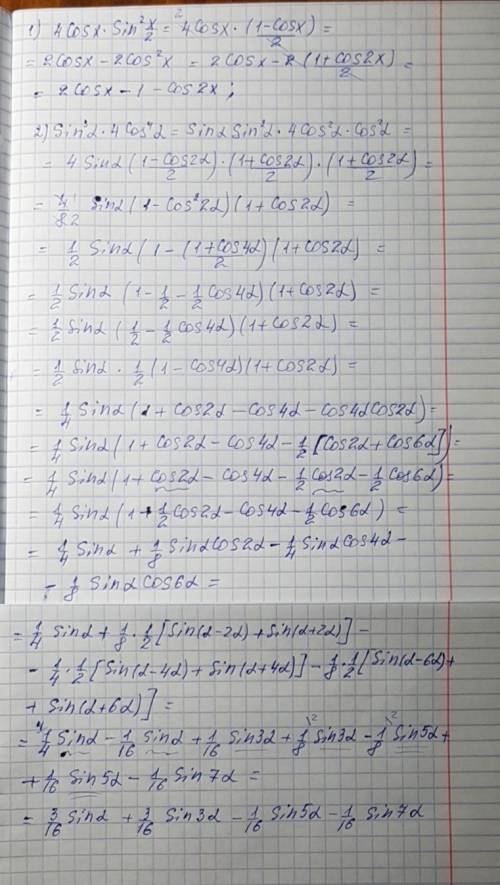 1) 4cosx · sin²x/2 = 4cosx · (1-cosx)/2 =
= 2cosx - 2cos²x = 2cosx - 2 (1+cos2x)/2 =
= 2cosx - 1 - cos2x ;
2) sin³α · 4cos⁴α = sinα sin²α · 4cos²α · cos²α =
= 4 sinα (1-cos2α)/2 · (1+cos2α)/2 · (1+cos2α)/2 =
= 4/82 sinα (1 - cos²2α) (1 + cos2α) =
= 1/2 sinα (1 - (1+cos4α)/2) (1+cos2α) =
= 1/2 sinα (1 - 1/2 - 1/2 cos4α) (1+cos2α) =
= 1/2 sinα (1/2 - 1/2 cos4α) (1+cos2α) =
= 1/2 sinα · 1/2 (1 - cos4α) (1+cos2α) =
= 1/4 sinα (1 + cos2α - cos4α - cos4αcos2α) =
= 1/4 sinα (1 + cos2α - cos4α - 1/2 [cos2α + cos6α]) =
= 1/4 sinα (1 + cos2α - cos4α - 1/2 cos2α - 1/2 cos6α) =
= 1/4 sinα (1 + 1/2 cos2α - cos4α - 1/2 cos6α) =
= 1/4 sinα + 1/8 sinαcos2α - 1/4 sinαcos4α -
- 1/8 sinαcos6α =
= 1/4 sinα + 1/8 · 1/2 [sin(α-2α) + sin(α+2α)] -
- 1/4 · 1/2 [sin(α-4α) + sin(α+4α)] - 1/8 · 1/2 [sin(α-6α) +
+ sin(α+6α)] =
= 1/4 sinα - 1/16 sinα + 1/16 sin3α + 1/8 sin3α - 1/8 sin5α +
+ 1/16 sin5α - 1/16 sin7α =
= 3/16 sinα + 3/16 sin3α - 1/16 sin5α - 1/16 sin7α